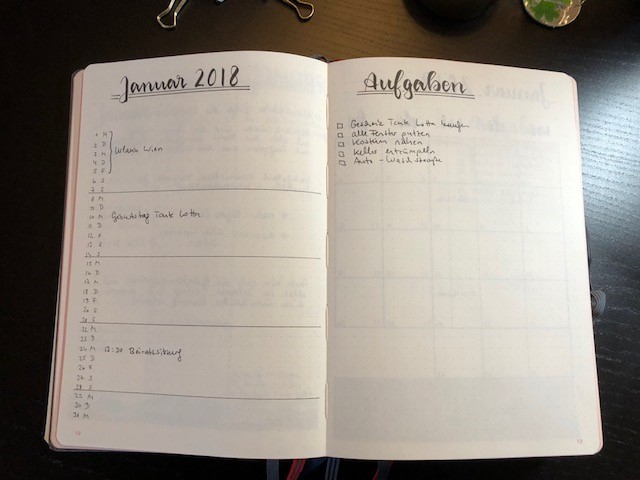 Januar 2018
1 M
2 D
3 M Urlaub Wien
4 D
5 F
6 S
7 S
8 M
9 D
10 M Geburtstag Tante Lotta
11 D
12 F
13 S
14 S
15 M
16 D
17 M
18 D
19 F
20 S
21 S
22 M
23 D
24 M Beiratssitzung
25 D
26 F
27 S
28 S
29 M
30 D
31 M
Aufgaben
Geschenk Tante Lotta kaufen
alle Fenster putzen
Kostüm nähen
Keller entrümpeln
Auto - Waschstraße